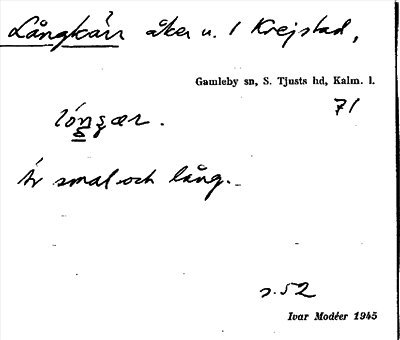 Långkärr åker u. 1 Krejstad,
Gamleby sn, S. Tjusts hd, Kalm. l.
71
Är smal och lång.
s. 52
Ivar Modéer 1945